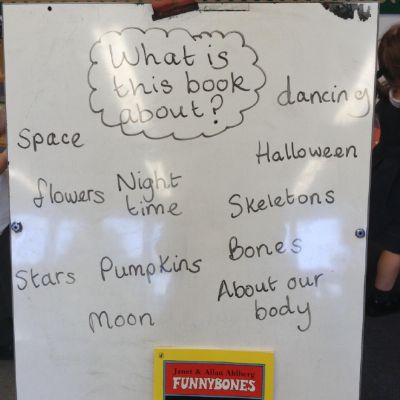 What is
this book
about?
dancing
Space
Halloween
flowers
Night
time
Skeletons
Bones
Stars
Pumpkins
About our
body
Moon
Janet & Allan Ahlberg
FUNNYBONES